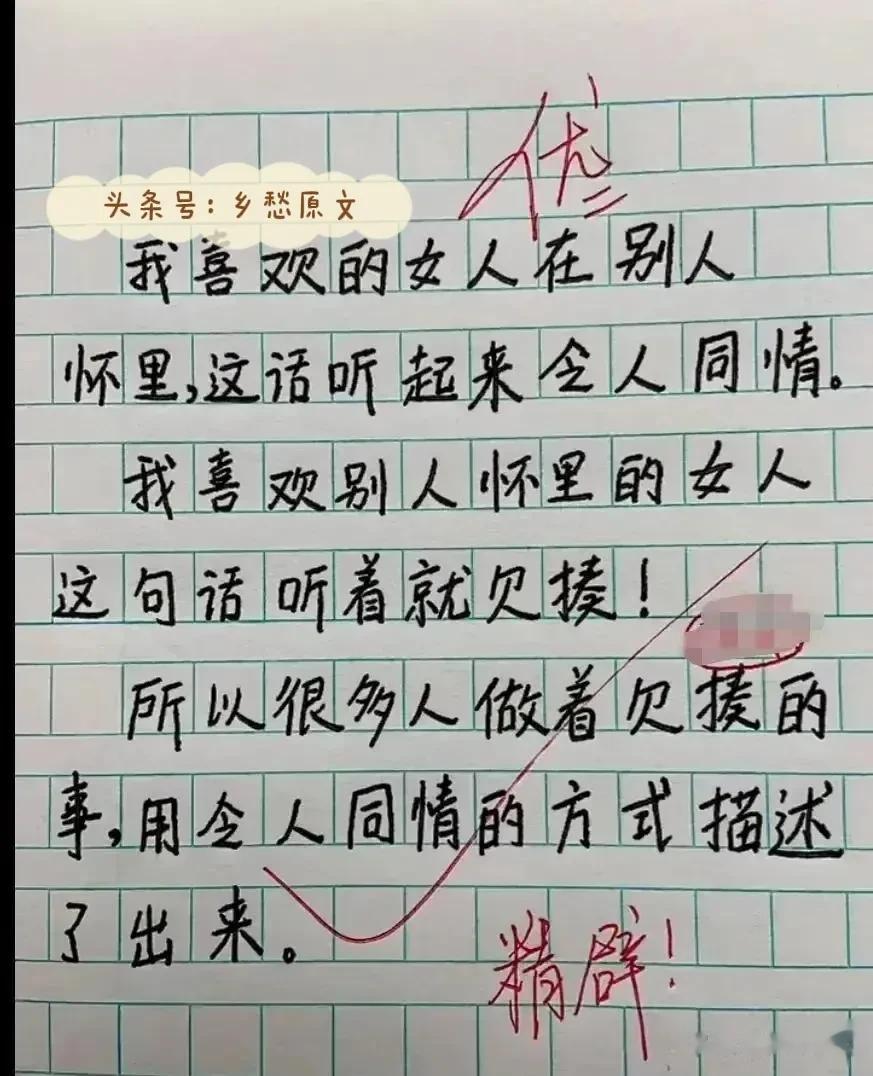 优
头条号:乡愁原文
我喜欢的女人在别人
怀里,这话听起来令人同情。
我喜欢别人怀里的女人
这句话听着就欠揍!
所以很多人做着欠揍的
事,用令人同情的方式描述
了出来。
精辟!